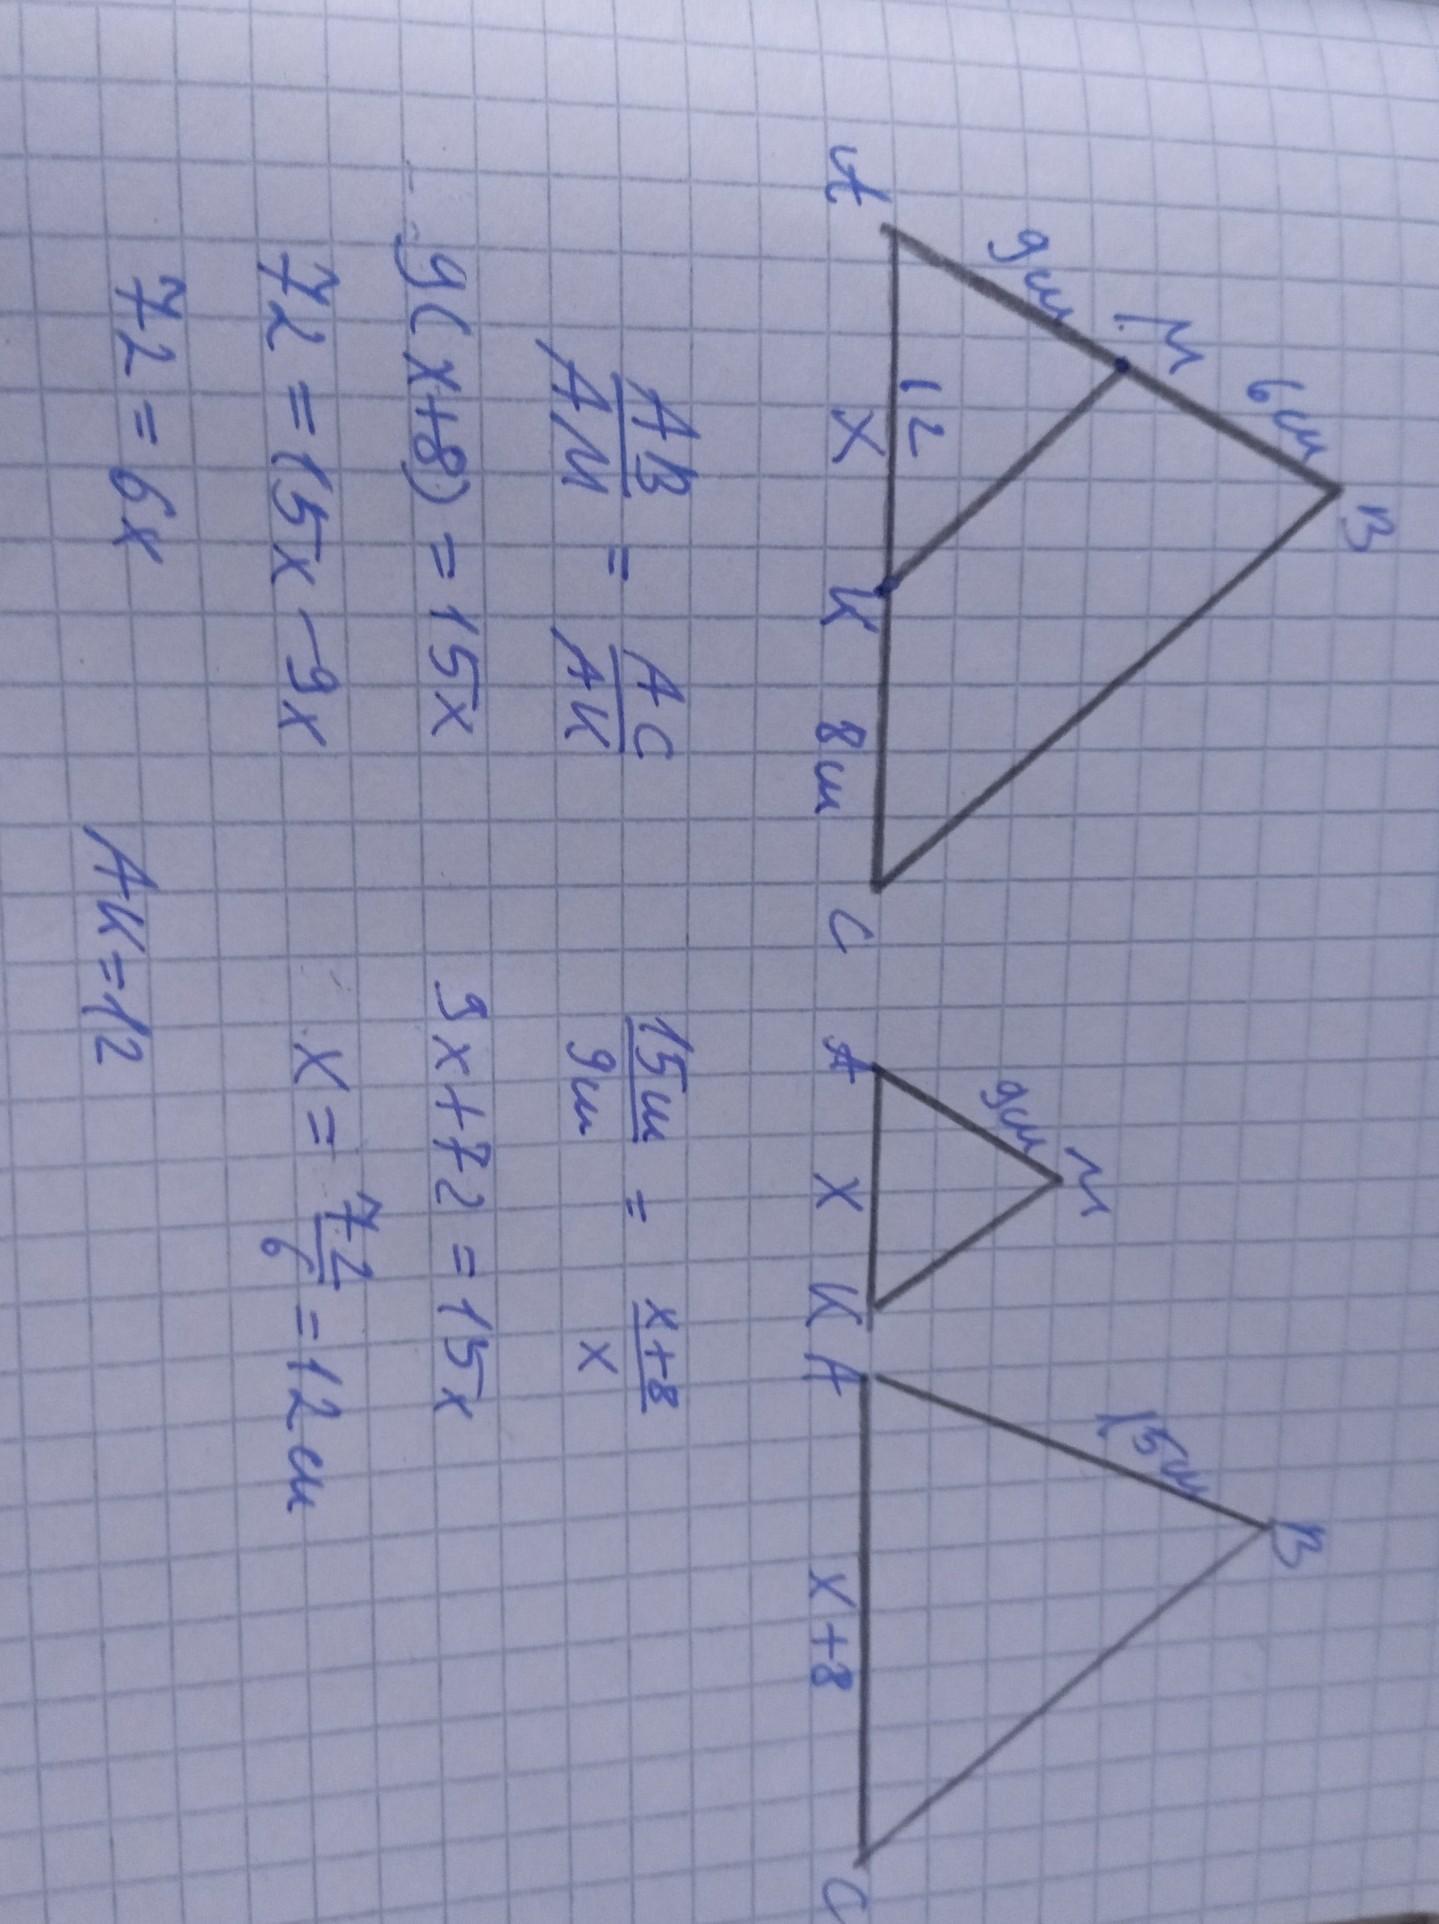 B B
M 6см M 15см
9см 9см
A 12 X K 8см C A X K A X+8 C
AB/AM = AC/AK 15см/9см = x+8/x
9(x+8) = 15x 9x+72 = 15x
72 = 15x - 9x x = 72/6 = 12 см
72 = 6x AK = 12